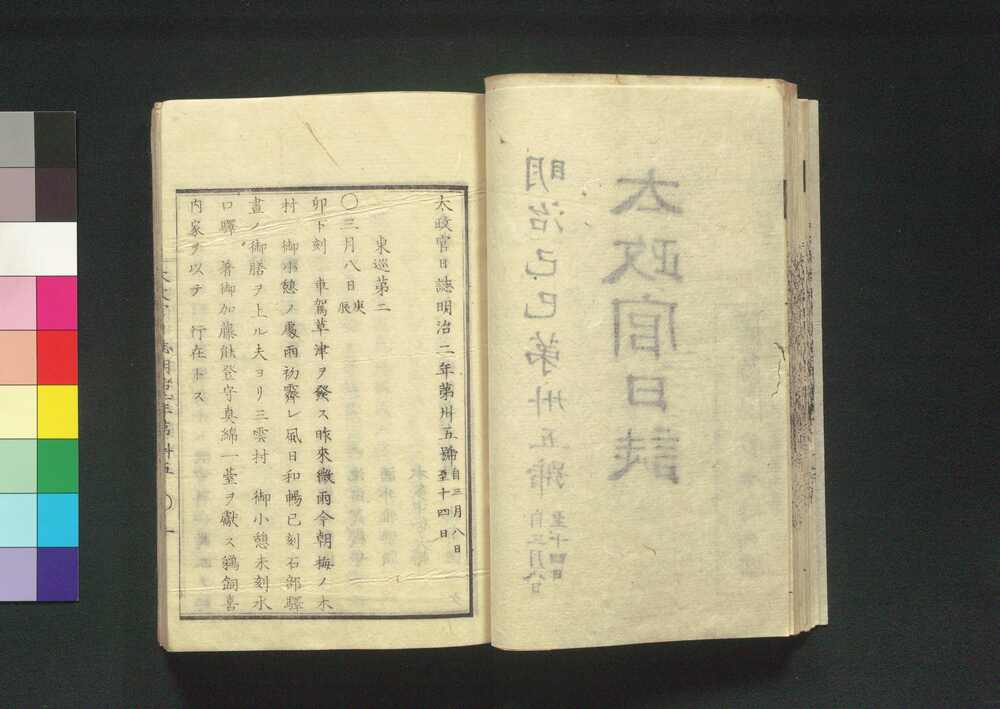 太政官日誌
明治己巳第卅五號 自三月八日 至十四日
太政官日誌明治二年第卅五號 自三月八日 至十四日
東巡第二
〇三月八日庚辰
卯下刻 車駕草津ヲ發ス昨來微雨今朝梅ノ木
村 御小憩ノ處雨初霽レ風日和暢已刻石部驛
晝ノ御膳ヲ上ル夫ヨリ三雲村 御小憩未刻水
口驛 著御加藤能登守眞綿一臺ヲ獻ス鵜飼喜
内家ヲ以テ 行在トス